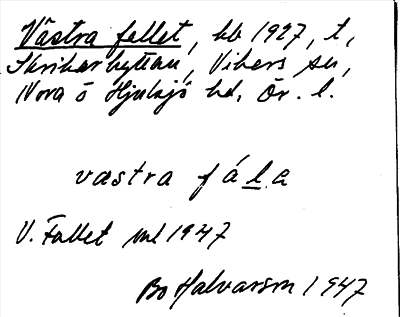 Västra fallet, hb 1927, t,
Skrikarhyttan, Vikers sn,
Nora o Hjulsjö hd, Ör. l.
vastra fála
V. Fallet ml 1947
Bo Halvarson 1947